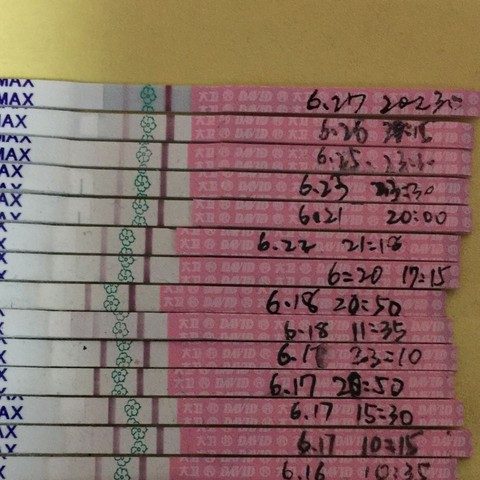 MAX
MAX 大卫 DAVID 6.27
MAX 大卫 DAVID 6.26
MAX
MAX 大卫 DAVID 6.25
AX 大卫 DAVID 6.23
AX 大卫 DAVID 6.21 20:00
X 大卫 DAVID 6.22 21:18
大卫 DAVID 6=20 17=15
大卫 DAVID 6.18 20:50
X 大卫 DAVID 6.18 11=35
X 大卫 DAVID 23=10
X 大卫 DAVID 6.17
AX 大卫 DAVID 6.17 15=30
AX 大卫 DAVID 6.17 10=15
X 大卫 DAVID 6.16 10:35